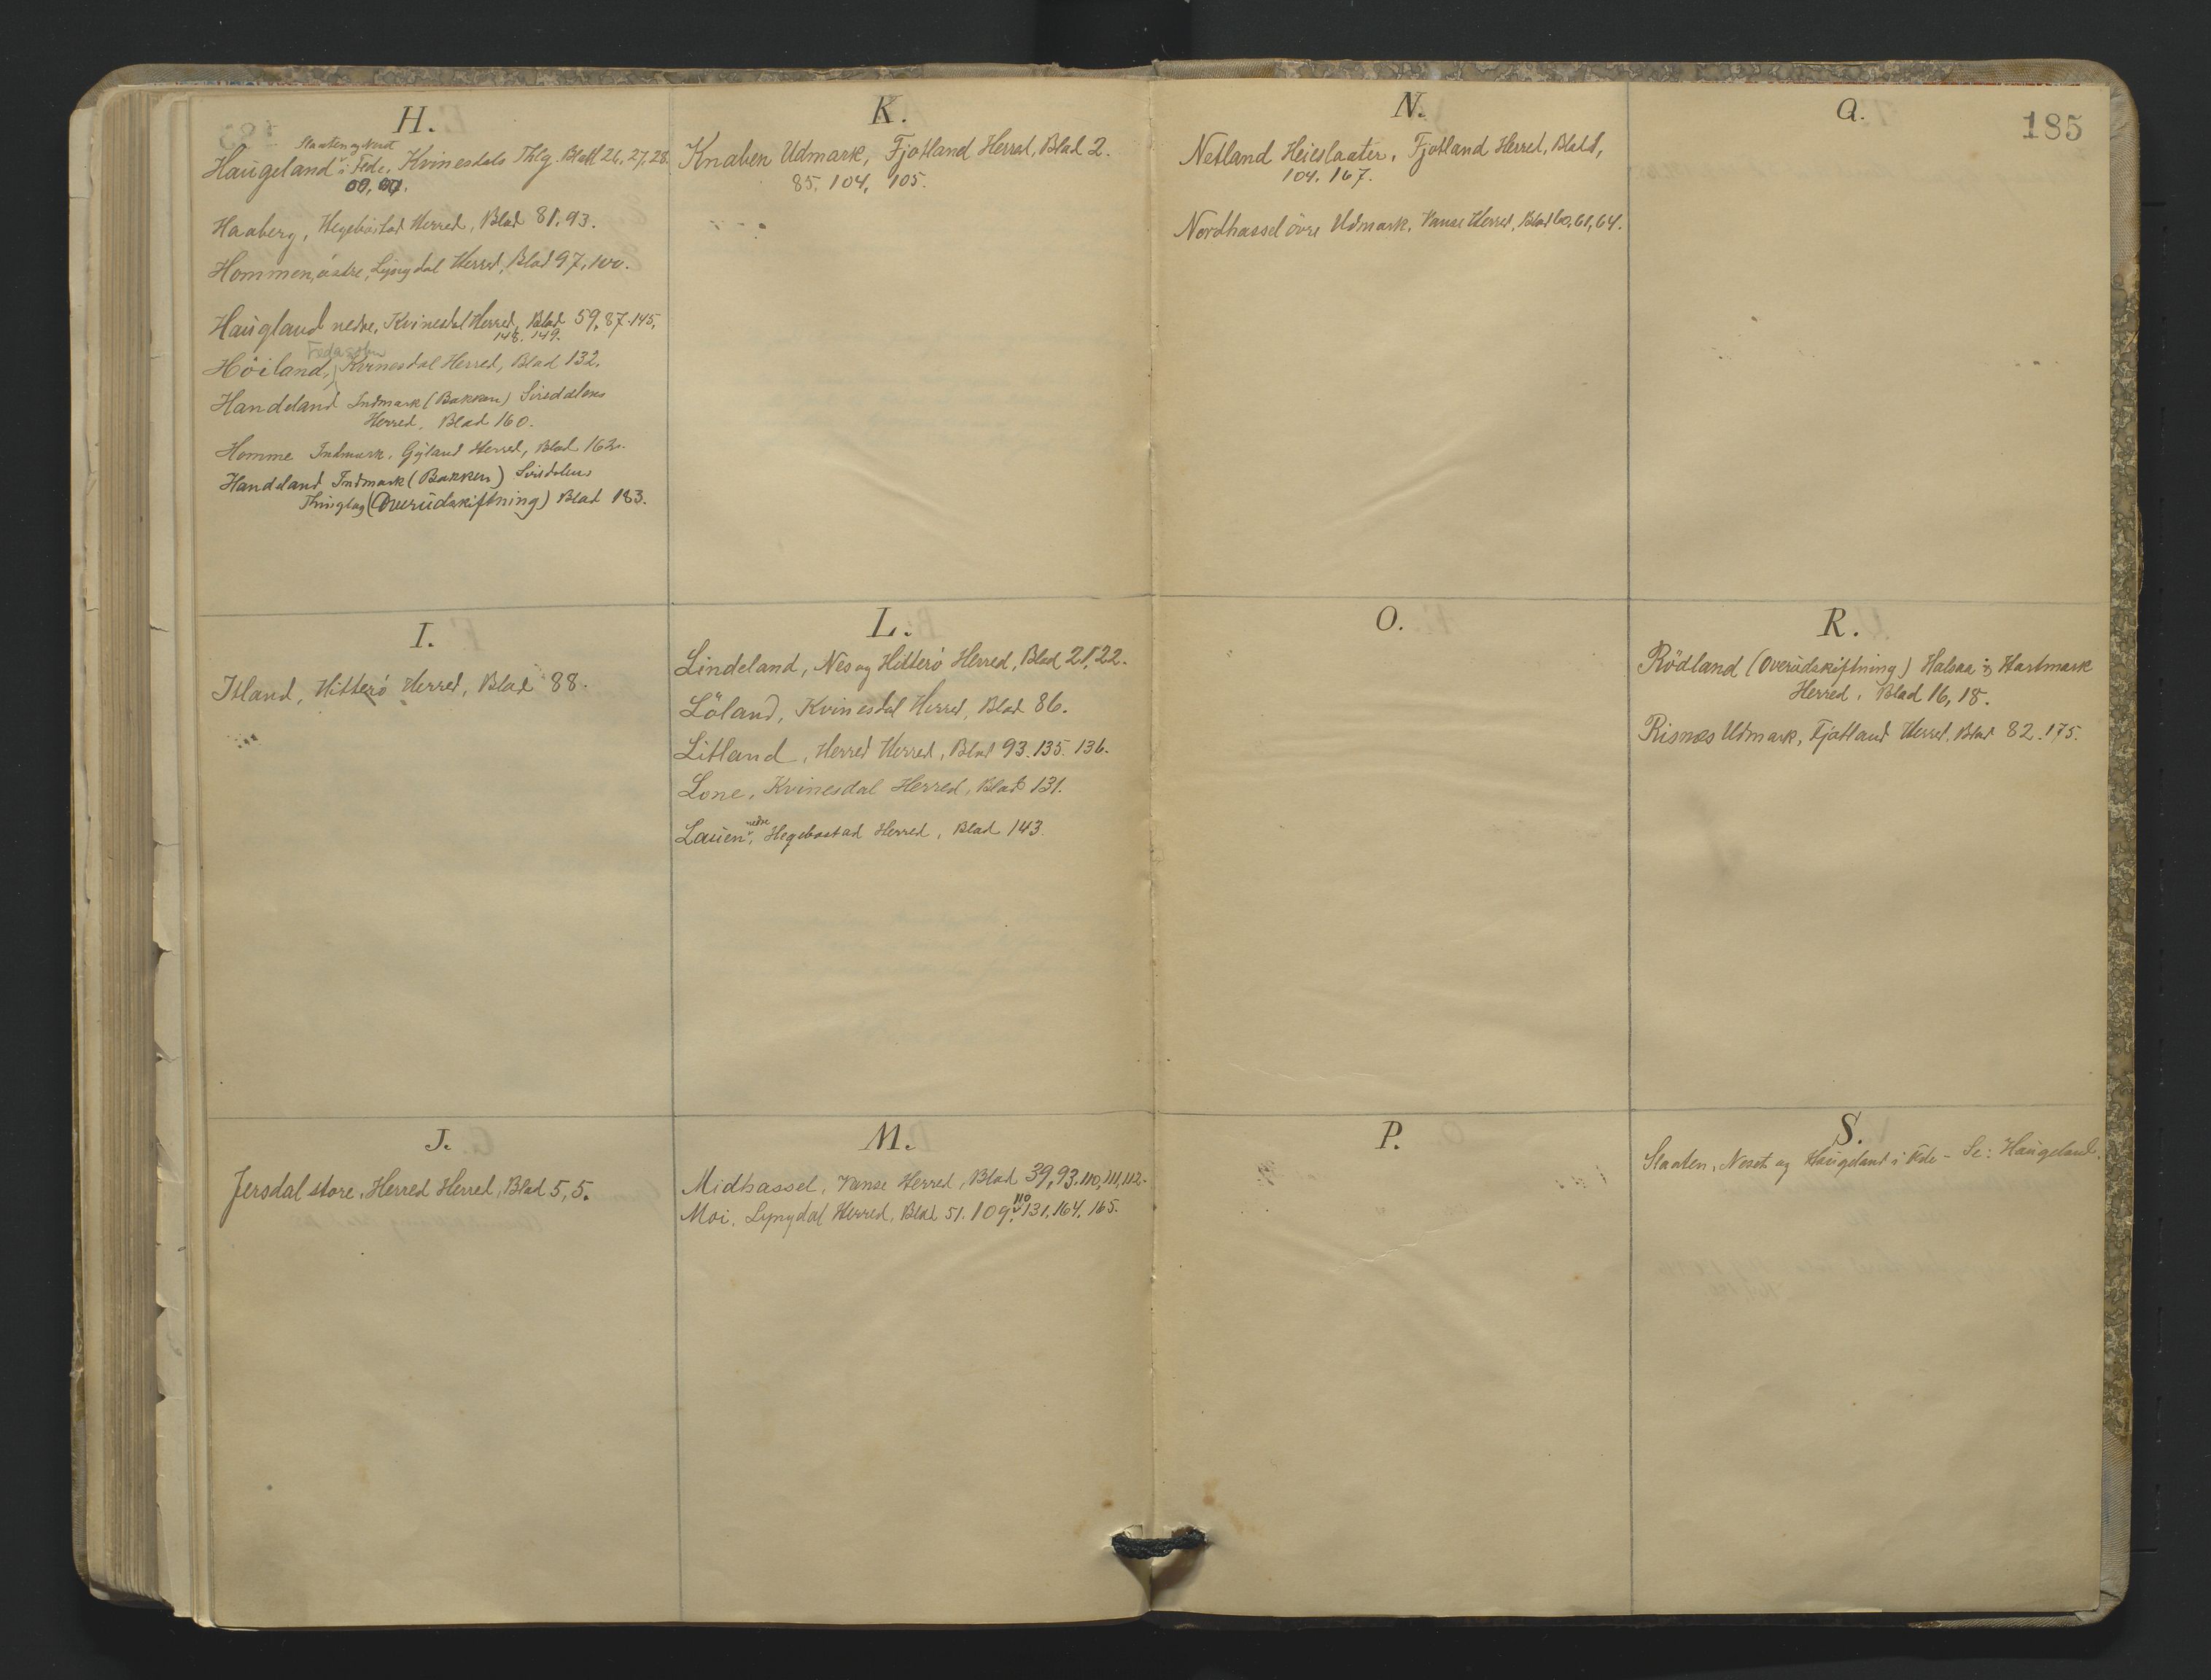 H.
Slaaten og Neset
Haugeland i Fede, Kvinesdals Thlg. Blad 26, 27, 28.
Haaberg, Hegebostad Herred, Blad 81, 93.
Hommen, östre, Lyngdal Herred, Blad 97, 100.
Haugland nedre, Kvinesdal Herred, Blad 59, 87. 145,
148. 149.
Feda sokn
Höiland, Kvinesdal Herred, Blad 132.
Handeland Indmark (Bakken) Siredalens
Herred, Blad 160.
Homme Indmark, Gyland Herred, Blad 162.
Handeland Indmark (Bakken) Siredalens
Thinglag (Overudskiftning) Blad 183.
I.
Itland, Hitterö Herred, Blad 88.
J.
Jersdal store, Herred Herred, Blad 5, 5.
K.
Knaben Udmark, Fjotland Herred, Blad 2.
85, 104, 105.
L.
Lindeland, Nes og Hitterö Herred, Blad 21, 22.
Löland, Kvinesdal Herred, Blad 86.
Litland, Herred Herred, Blad 93. 135. 136.
Lone, Kvinesdal Herred, Blad 131.
nedre
Lauen, Hegebostad Herred, Blad 143.
M.
Midhassel, Vanse Herred, Blad 39, 93. 110, 111, 112.
110
Moi, Lyngdal Herred, Blad 51. 109, 131, 164, 165.
N.
Netland Heieslaater, Fjotland Herred, Blad
104. 167.
Nordhassel övre Udmark, Vanse Herred, Blad 60, 61, 64.
O.
P.
Q.
185
R.
Rödland (Overudskiftning) Halsaa og Hartmark
Herred, Blad 16, 18.
Risnes Udmark, Fjotland Herred, Blad 82. 175.
S.
Slaaten, Neset og Haugeland i Fede - Se: Haugeland.